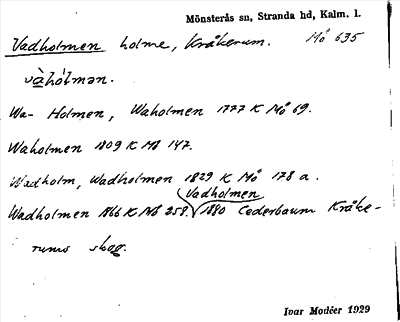 Mönsterås sn, Stranda hd, Kalm. l.
Vadholmen holme, Kråkerum. Mö 635
vàhól̀mən.
Wa- Holmen, Waholmen 1777 K Mö 69.
Waholmen 1809 K Mö 147.
Wadholm, Wadholmen 1829 K Mö 178 a.
Vadholmen
Wadholmen 1866 K Mö 258. 1880 Cederbaum Kråke-
rums skog.
Ivar Modéer 1929